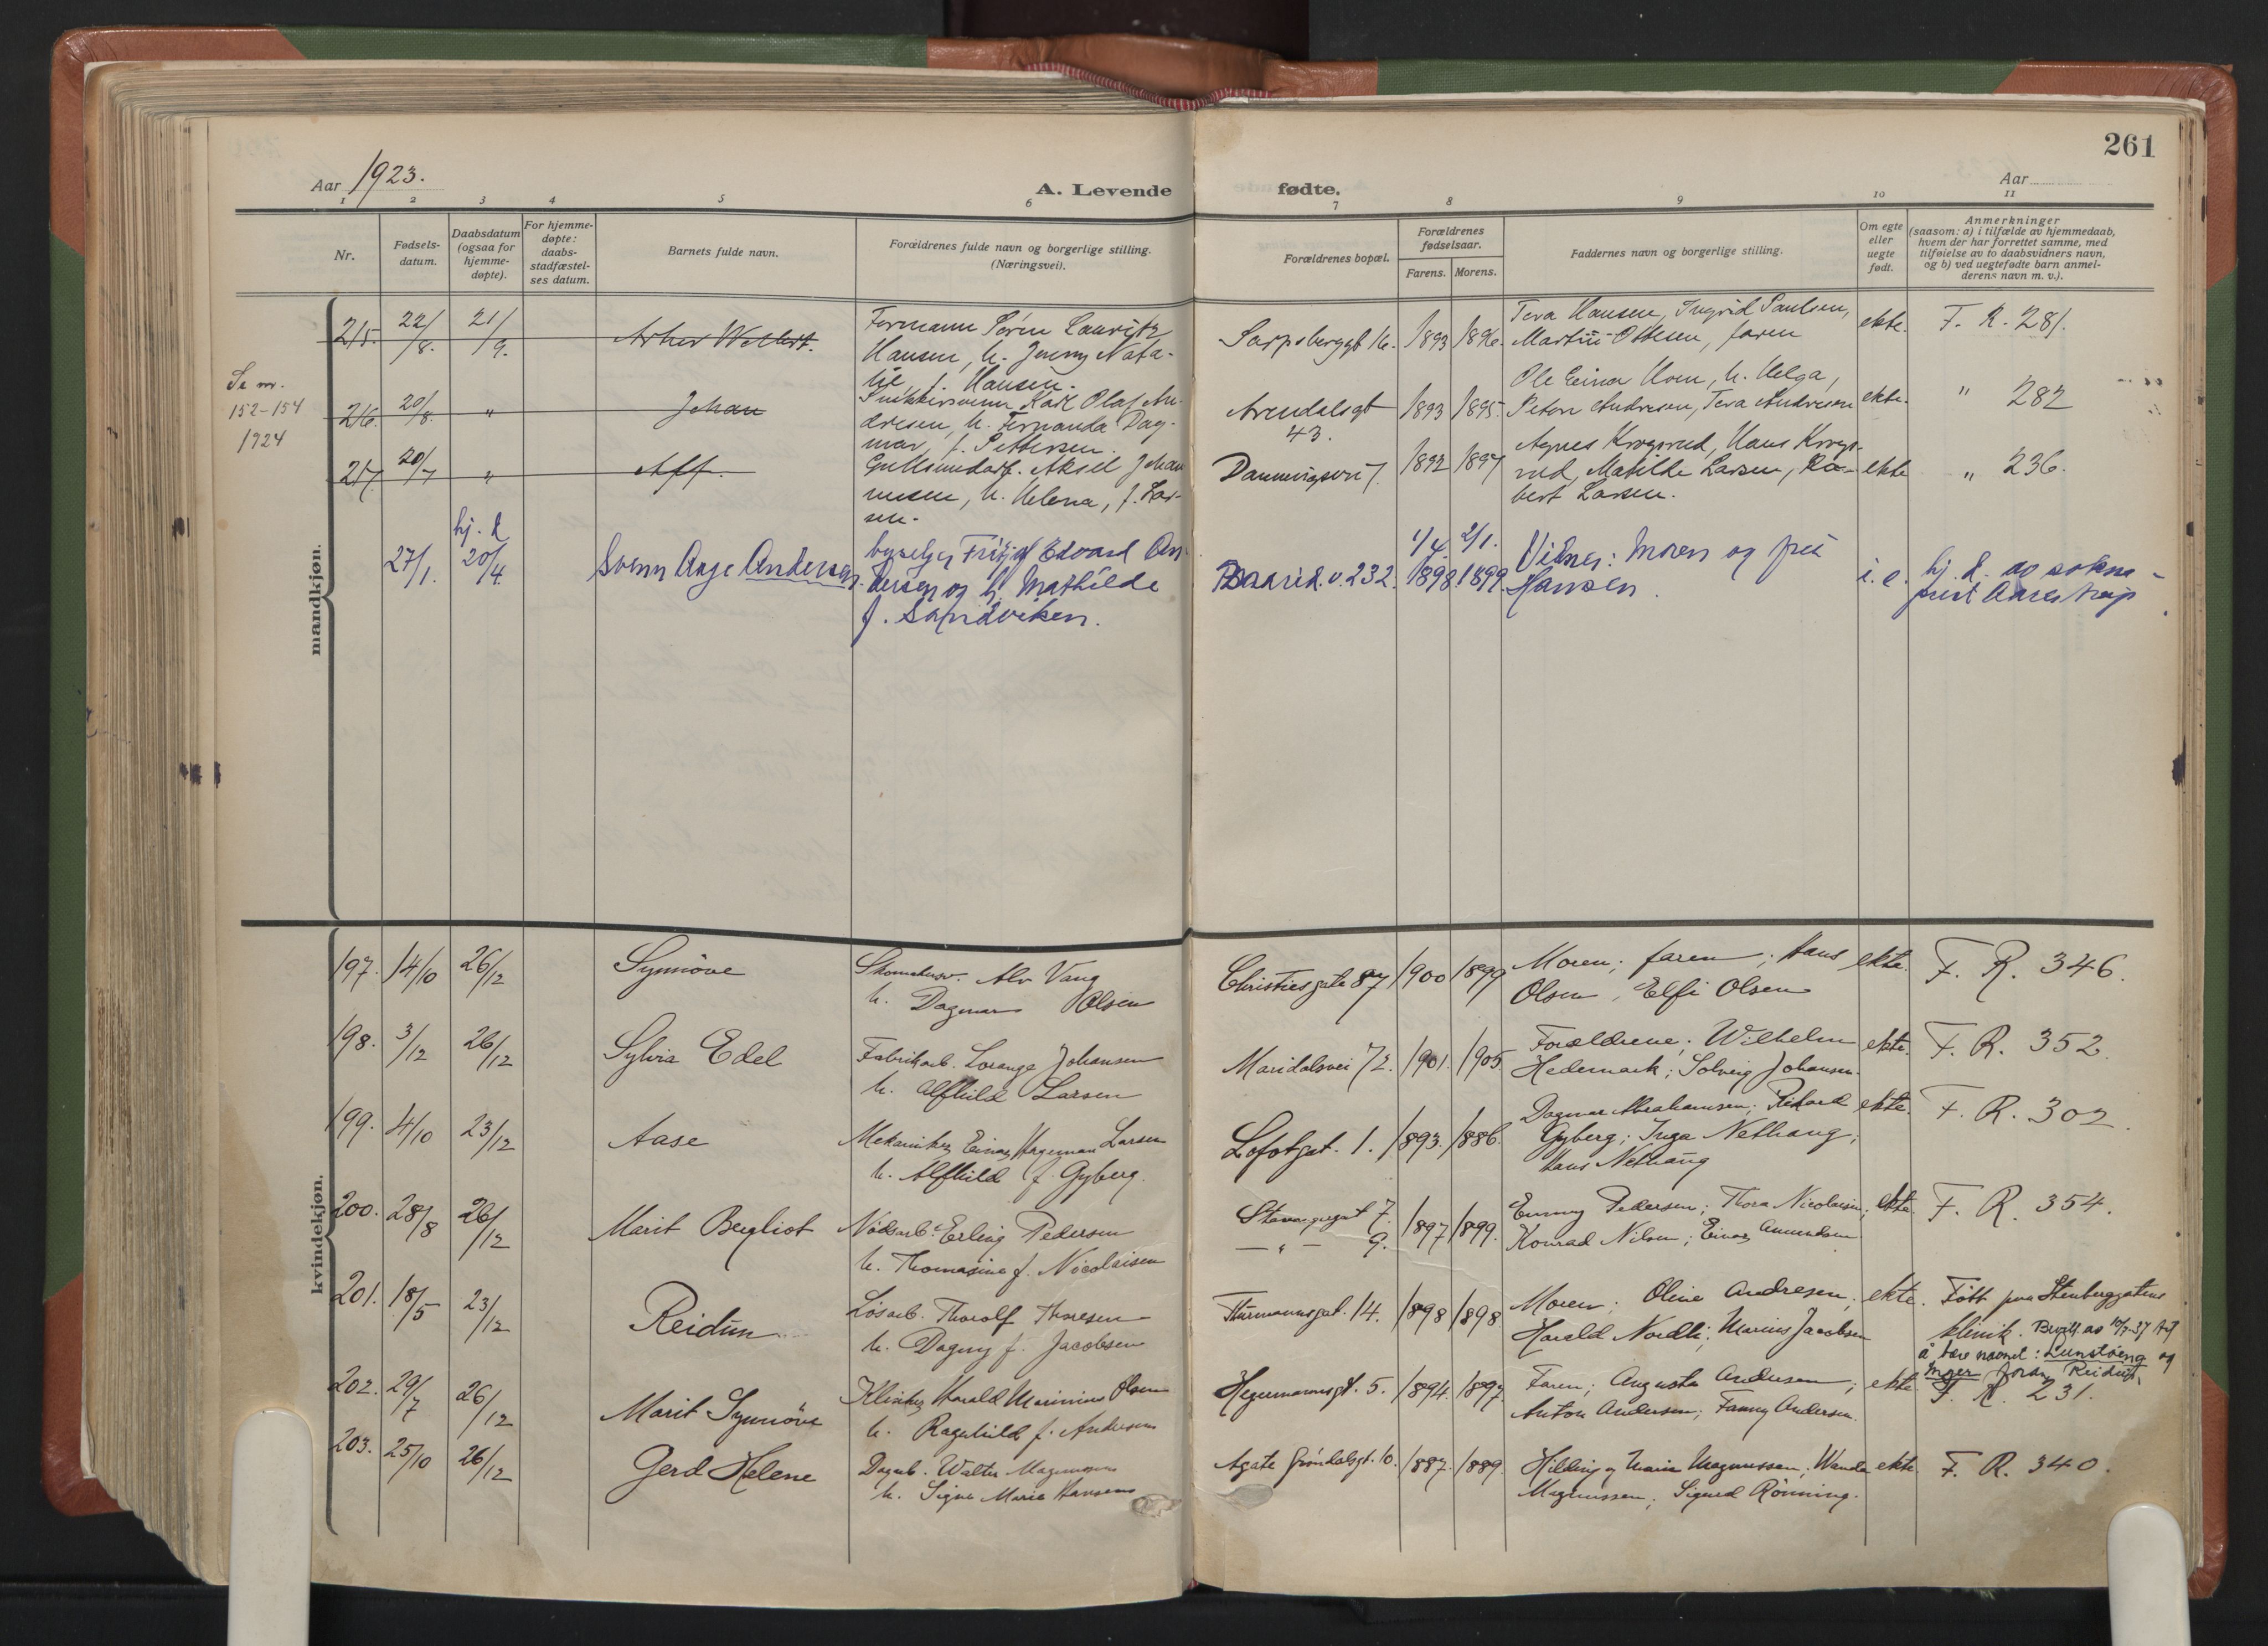 261
Aar 1923.
A. Levende fødte.
Aar
1 2 3 4 5 6 7 8 9 10 11
Nr.
Fødsels-
datum.
Daabsdatum
(ogsaa for
hjemme-
døpte).
For hjemme-
døpte:
daabs-
stadfæstel-
ses datum.
Barnets fulde navn.
Forældrenes fulde navn og borgerlige stilling.
(Næringsvei).
Forældrenes bopæl.
Forældrenes
fødselsaar.
Farens. Morens.
Faddernes navn og borgerlige stilling.
Om egte
eller
uegte
født.
Anmerkninger
(saasom: a) i tilfælde av hjemmedaab,
hvem der har forrettet samme, med
tilføielse av to daabsvidners navn,
og b) ved uegtefødte barn anmel-
derens navn m. v.).
mandkjøn.
Se nr.
152-154
1924
215. 22/8. 21/9.
Formann Søren Lauritz
Hansen, h. Jenny Nata-
lie, f. Hansen.
1893 1896.
Tora Hansen, Ingrid Paulsen,
Martin Ottesen, faren
ekte. F. R. 281.
216. 20/8. "
Johan
Snekkersvenn Karl Olaf An-
dresen, h. Fernanda Dag-
mar, f. Pettersen.
Arendalsgt
43.
1893 1895.
Ole Einar Moen, h. Helga,
Petora Andresen, Tora Andresen
ekte. " 282
217. 20/7 "
Aksel Johan
nesen, h. Helena, f. Lar-
sen.
1892 1897
Agnes Krogsrud, Hans Krogs-
rud, Matilde Larsen, Ro-
bert Larsen.
ekte " 236.
hj. d.
27/1. 20/4.
Svenn Aage Andersen.
Edvard An-
dersen og h. Mathilde
f. Sandviken.
Maarid.v.232.
1/4. 2/1.
1898. 1899.
Vitner: Moren og frk
Hansen.
i. e.
hj. d. av sokne-
prest Aarestrup
kvindekjøn.
197. 14/10 26/12
Synnöve
Alv Vang
h. Dagmar Olsen
Christiesgate 87 1900 1899
Moren; faren; Hans
Olsen, Elfi Olsen
ekte. F. R. 346.
198. 3/12 26/12
Sylvia Edel
Fabrikarb. Lorang Johansen
h. Alfhild Larsen
Maridalsvei 72. 1901. 1905.
Forældrene; Wilhelm
Hedemark; Solveig Johansen.
ekte. F. R. 352.
199. 4/10 23/12
Aase
Mekaniker Einar Hageman Larsen
h. Alfhild f. Gyberg.
Lofotgat. 1. 1893. 1886.
Dagmar Abrahamsen; Rikard
Gyberg; Inga Nethaug;
Hans Nethaug
ekte. F. R. 302.
200. 28/8 26/12
Marit Bergliot
Erling Pedersen
h. Thomasine f. Nicolaisen
Stavangergat 7.
— " — 9.
1897 1899.
Emmy Pedersen; Thora Nicolaisen;
Konrad Nilsen; Einar Amundsen
ekte. F. R. 354.
201. 18/5 23/12
Reidun
Løsarb. Thorolf Thoresen
h. Dagny f. Jacobsen
Thurmannsgat. 14. 1898 1898
Moren; Oline Andresen;
Harald Nordli; Marius Jacobsen
ekte. Født paa Stenberggatens
klinik.
å bære navnet: Lunstøeng og
202. 29/7 26/12
Marit Synnöve
Harald Marinius Olsen
h. Ragnhild f. Andersen
Hegermannsgt. 5. 1894. 1897.
Faren; Augusta Andersen;
Anton Andersen; Fanny Andersen.
ekte. F. R. 231.
203. 25/10 26/12
Gerd Helene
Dagarb. Walter Magnussen
h. Signe Marie Hansen
Agate Grøndalsgt. 10. 1887. 1889.
Hilding og Maria Magnussen; Wanda
Magnussen; Sigurd Rönning.
ekte. F. R. 340.